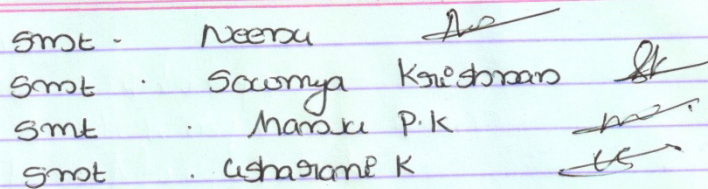 Smt - Neenu
Smt . Sowmya Krishnan
Smt . Manju P.K
Smt . Usharani K